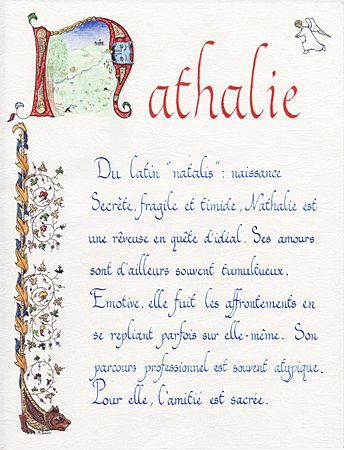 Nathalie
Du latin "natalis" : naissance
Secrète, fragile et timide, Nathalie est
une rêveuse en quête d'idéal. Ses amours
sont d'ailleurs souvent tumultueux.
Emotive, elle fuit les affrontements en
se repliant parfois sur elle-même. Son
parcours professionnel est souvent atypique.
Pour elle, l'amitié est sacrée.